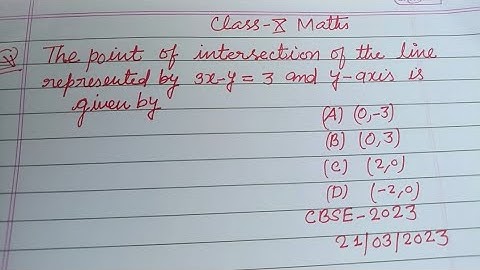 Class-X Maths
Q The point of intersection of the line
represented by 3x-y = 3 and y-axis is
given by
(A) (0,-3)
(B) (0,3)
(C) (2,0)
(D) (-2,0)
CBSE-2023
21/03/2023